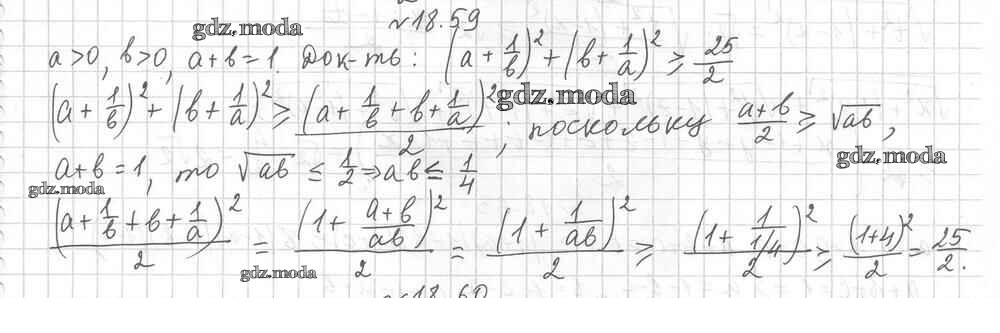 №18.59
gdz.moda
a>0, b>0, a+b=1. Док-ть: (a + 1/b)² + (b + 1/a)² ≥ 25/2
(a + 1/b)² + (b + 1/a)² ≥ (a + 1/b + b + 1/a)²/2; поскольку (a+b)/2 ≥ √ab,
gdz.moda
a+b=1, то √ab ≤ 1/2 ⇒ ab ≤ 1/4
gdz.moda
gdz.moda
(a + 1/b + b + 1/a)²/2 = (1 + (a+b)/ab)²/2 = (1 + 1/ab)²/2 ≥ (1 + 1/(1/4))²/2 ≥ (1+4)²/2 = 25/2.
gdz.moda
№18.60